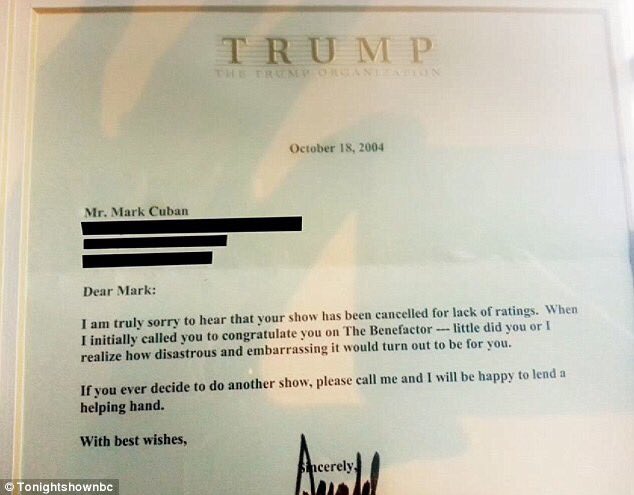 TRUMP
THE TRUMP ORGANIZATION
October 18, 2004
Mr. Mark Cuban
Dear Mark:
I am truly sorry to hear that your show has been cancelled for lack of ratings. When
I initially called you to congratulate you on The Benefactor --- little did you or I
realize how disastrous and embarrassing it would turn out to be for you.
If you ever decide to do another show, please call me and I will be happy to lend a
helping hand.
With best wishes,
Sincerely,
© Tonightshownbc